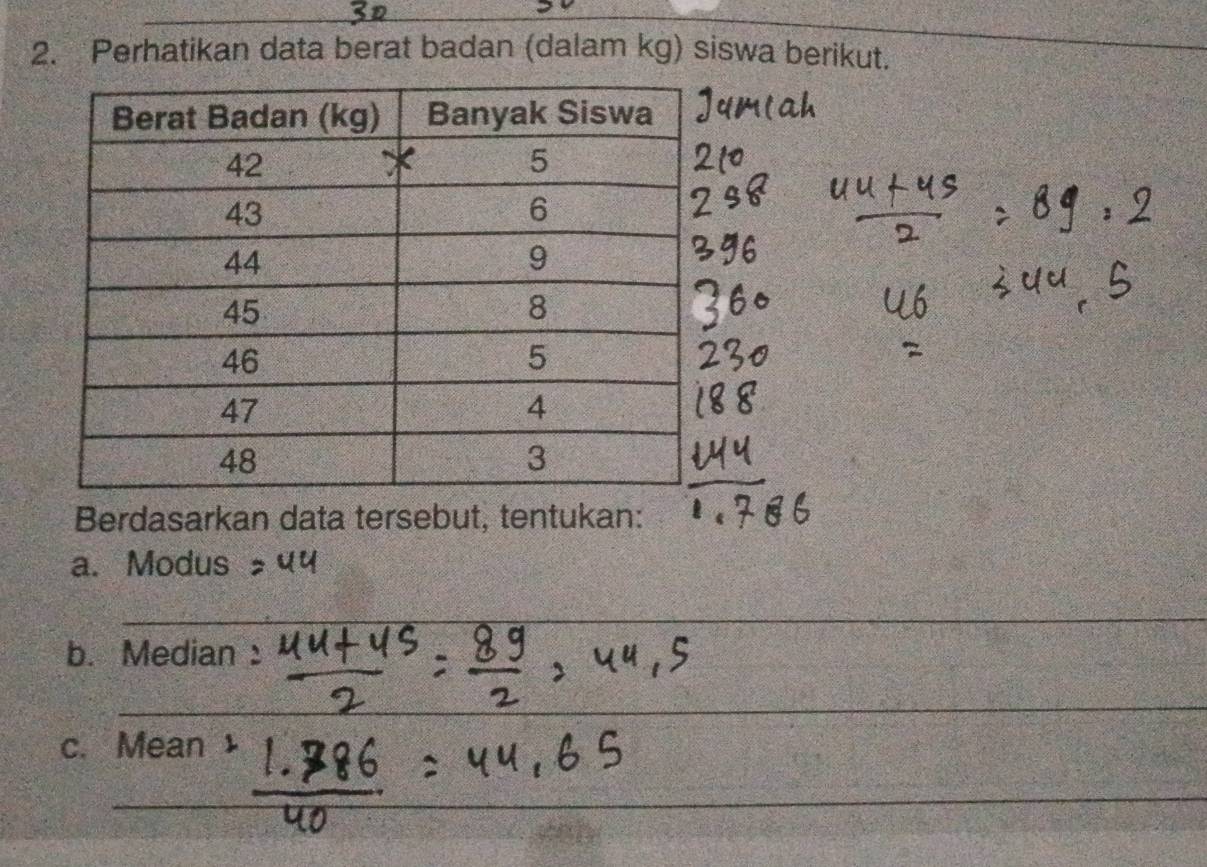 30
2. Perhatikan data berat badan (dalam kg) siswa berikut.
Berat Badan (kg) Banyak Siswa Jumlah
42 × 5 210
43 6 258
44 9 396
45 8 360
46 5 230
47 4 188
48 3 144
1.786
44+45 / 2 = 89 : 2
= 44,5
46
=
Berdasarkan data tersebut, tentukan:
a. Modus = 44
b. Median = 44+45 / 2 = 89 / 2 = 44,5
c. Mean = 1.786 / 40 = 44,65